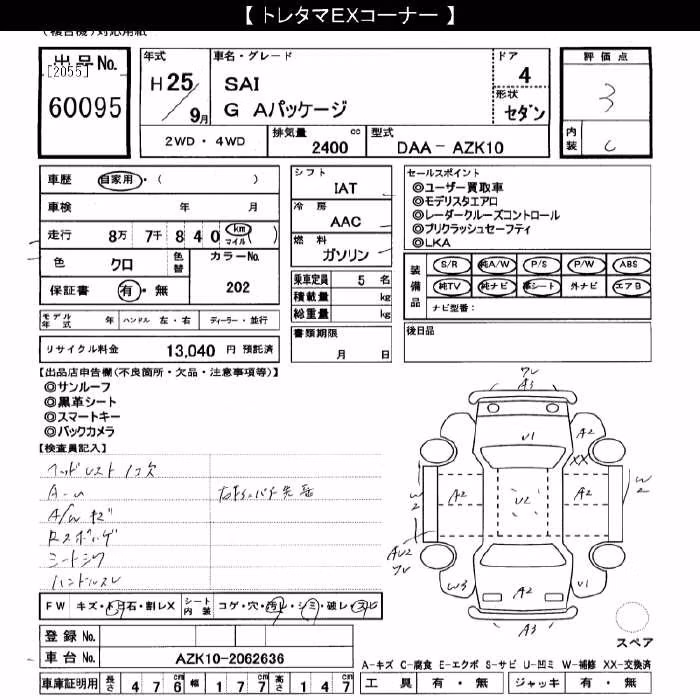 【 トレタマEXコーナー 】
出品No.
[2055]
60095
年式
H25/9月
車名・グレード
SAI
G Aパッケージ
ドア
4
形状
セダン
評価点
3
内装
C
2WD・4WD
排気量 cc
2400
型式
DAA－AZK10
車歴 自家用・( )
車検 年 月
走行 8万 7千 8 4 0 km マイル ( )
色 クロ 色替 カラーNo. 202
保証書 有・無
シフト
IAT
冷房
AAC
燃料
ガソリン
乗車定員 5 名
積載量 kg
総重量 kg
セールスポイント
◎ユーザー買取車
◎モデリスタエアロ
◎レーダークルーズコントロール
◎プリクラッシュセーフティ
◎LKA
装備品
S/R 純A/W P/S P/W ABS
純TV 純ナビ 革シート 外ナビ エアB
ナビ型番：
モデル年式 年 ハンドル 左・右 ディーラー・並行
書類期限
月 日
後日品
リサイクル料金 13,040 円 預託済
【出品店申告欄(不良箇所・欠品・注意事項等)】
◎サンルーフ
◎黒革シート
◎スマートキー
◎バックカメラ
【検査員記入】
ヘッドレスト1コ欠
A-U
A/W キズ
シートシワ
ハンドルスレ
FW キズ・トビ石・割レX
シート内装 コゲ・穴・汚レ・シミ・破レ・スレ
登録No.
車台No. AZK10-2062636
車庫証明用 長さ 4 7 6 cm 幅 1 7 7 cm 高さ 1 4 7 cm
A3
U1
A2
XX
W2
A2
U2
A2
W2
AU2
W3
A2
U1
A3
スペア
A-キズ C-腐食 E-エクボ S-サビ U-凹ミ W-補修 XX-交換済
工具 有・無 ジャッキ 有・無